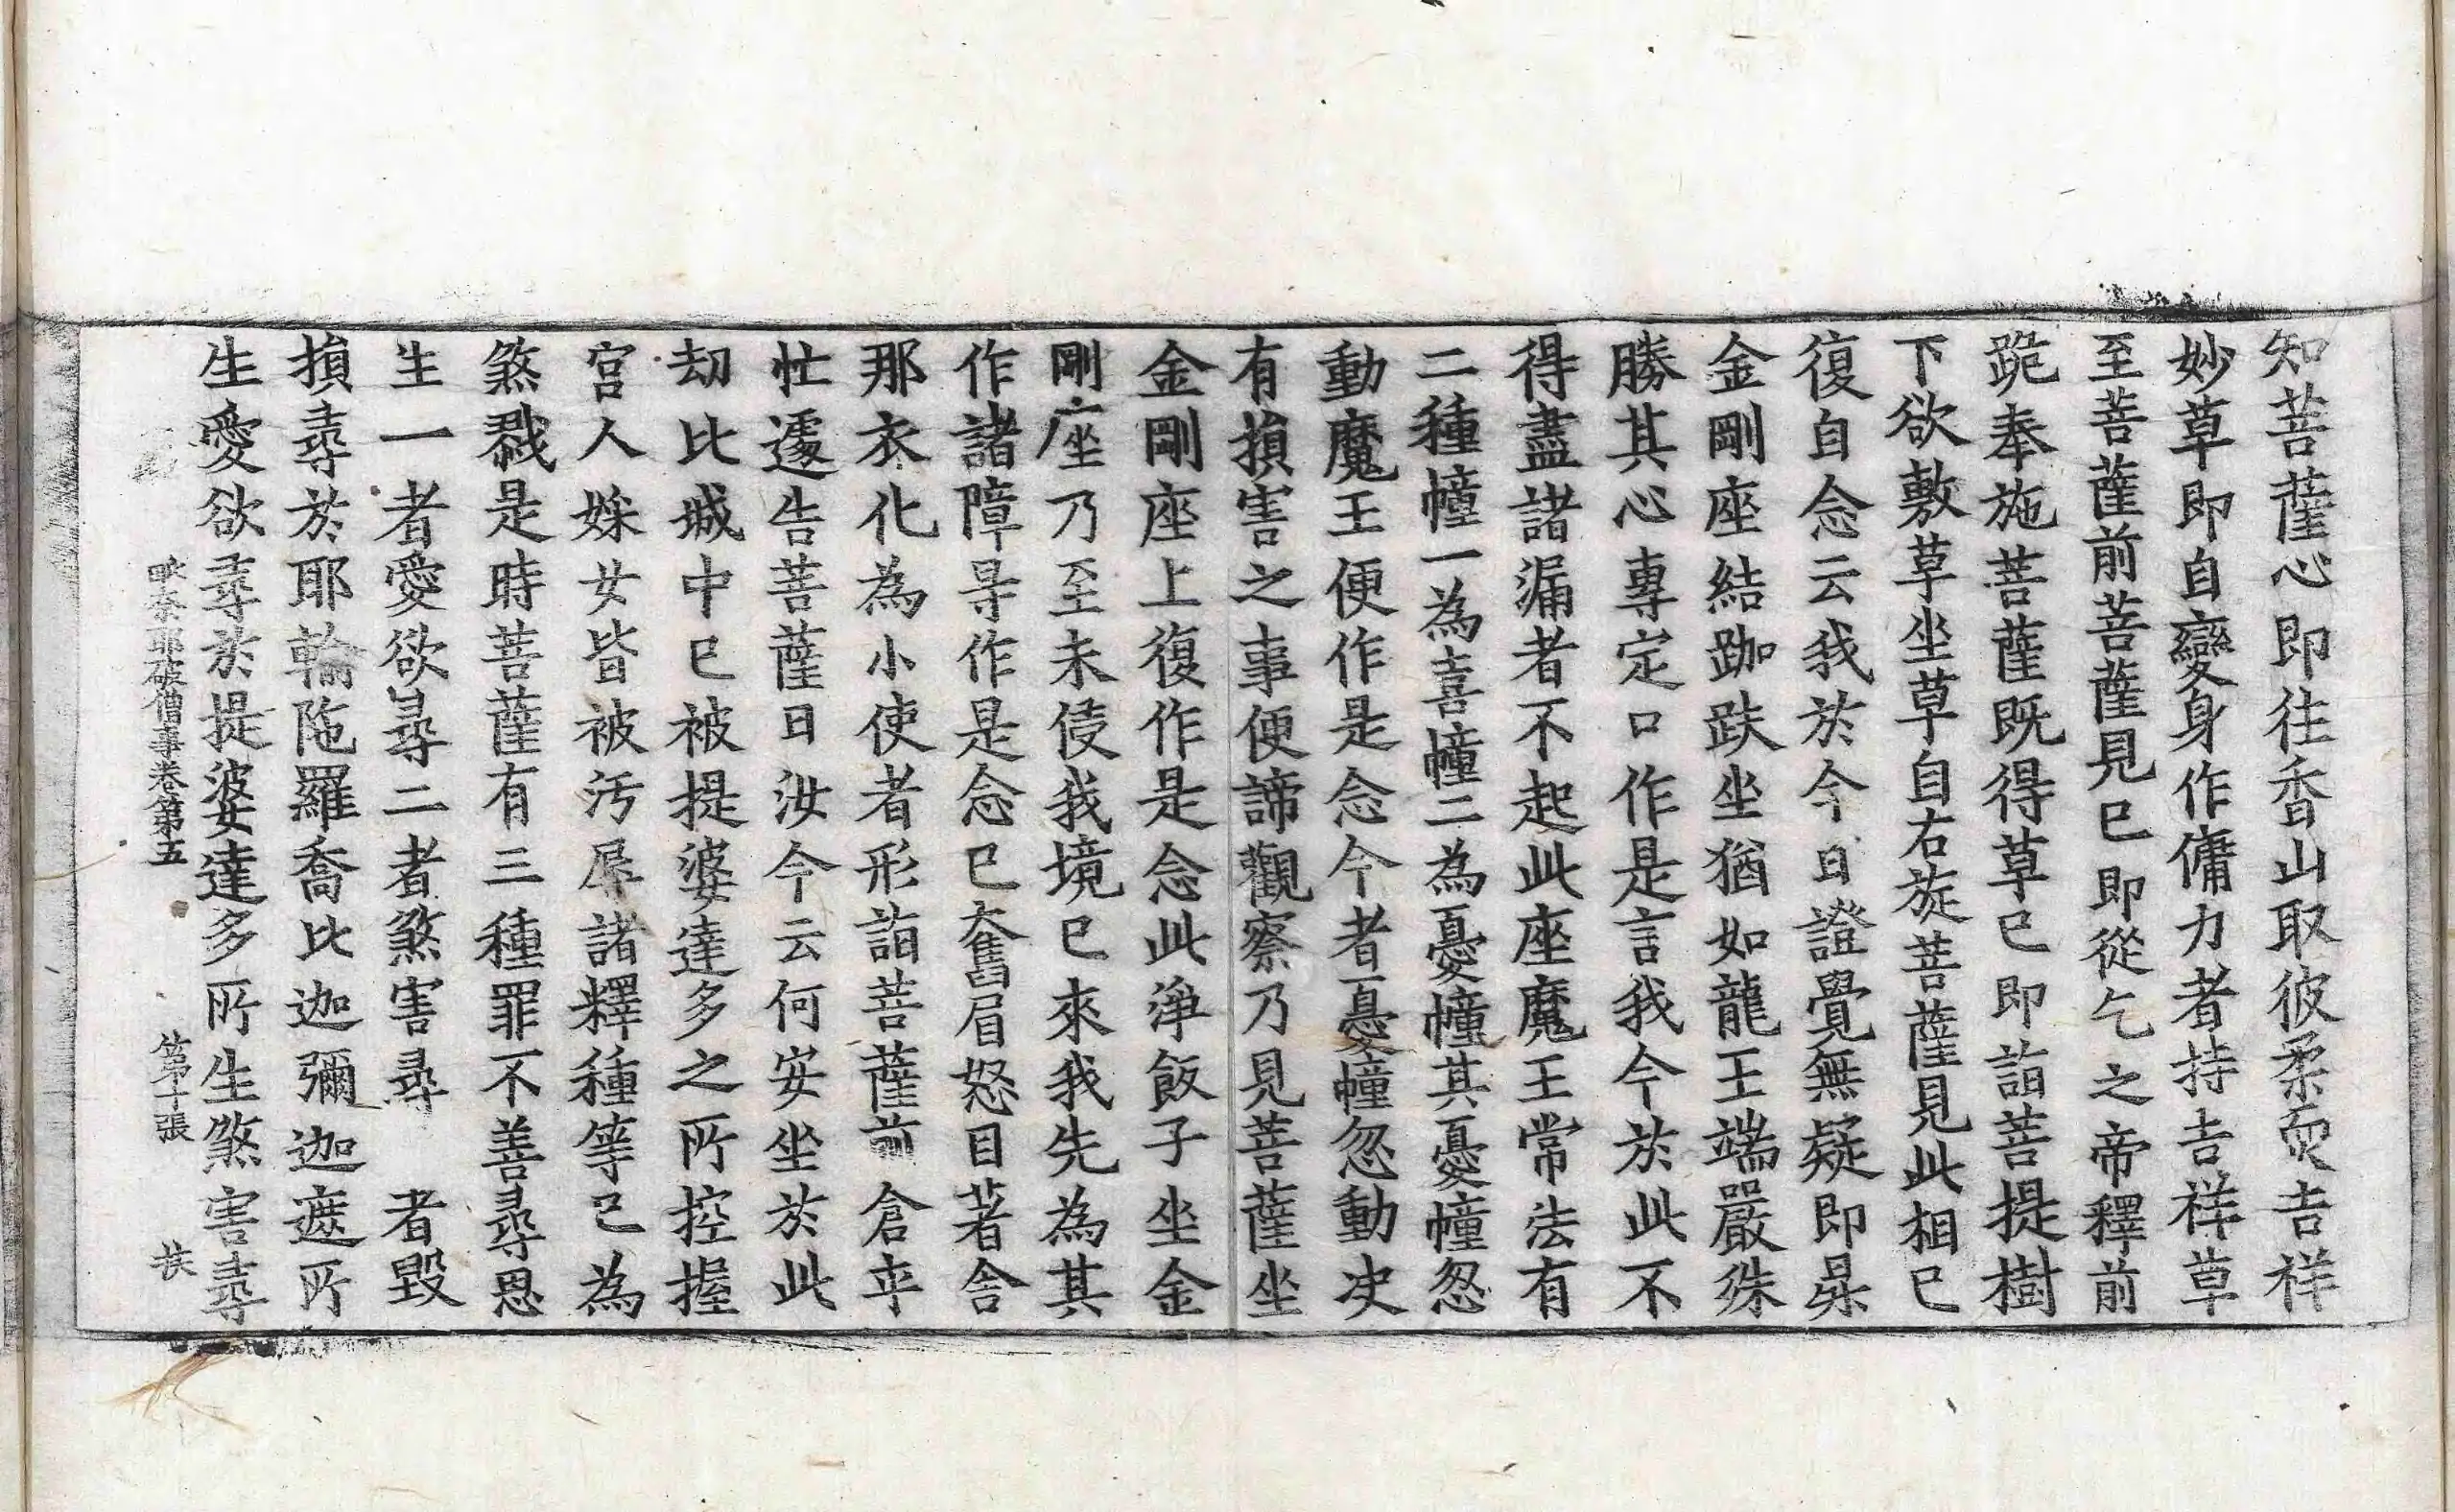 知菩薩心即往香山取彼柔耎吉祥
妙草即自變身作傭力者持吉祥草
至菩薩前菩薩見已即從乞之帝釋前
跪奉施菩薩既得草已即詣菩提樹
下欲敷草坐草自右旋菩薩見此相已
復自念云我於今日證覺無疑即昇
金剛座結跏趺坐猶如龍王端嚴殊
勝其心專定口作是言我今於此不
得盡諸漏者不起此座魔王常法有
二種幢一為喜幢二為憂幢其憂幢忽
動魔王便作是念今者憂幢忽動決
有損害之事便諦觀察乃見菩薩坐
金剛座上復作是念此淨飯子坐金
剛座乃至未侵我境已來我先為其
作諸障㝵作是念已奮眉怒目著舍
那衣化為小使者形詣菩薩前倉卒
忙遽告菩薩曰汝今云何安坐於此
劫比城中已被提婆達多之所控握
宮人婇女皆被汚辱諸釋種等已為
煞戮是時菩薩有三種罪不善尋思
生一者愛欲尋二者煞害尋 者毀
損尋於耶輸陁羅喬比迦彌迦遮所
生愛欲尋於提婆達多所生煞害尋
耶破僧事卷第五 第十張 扶